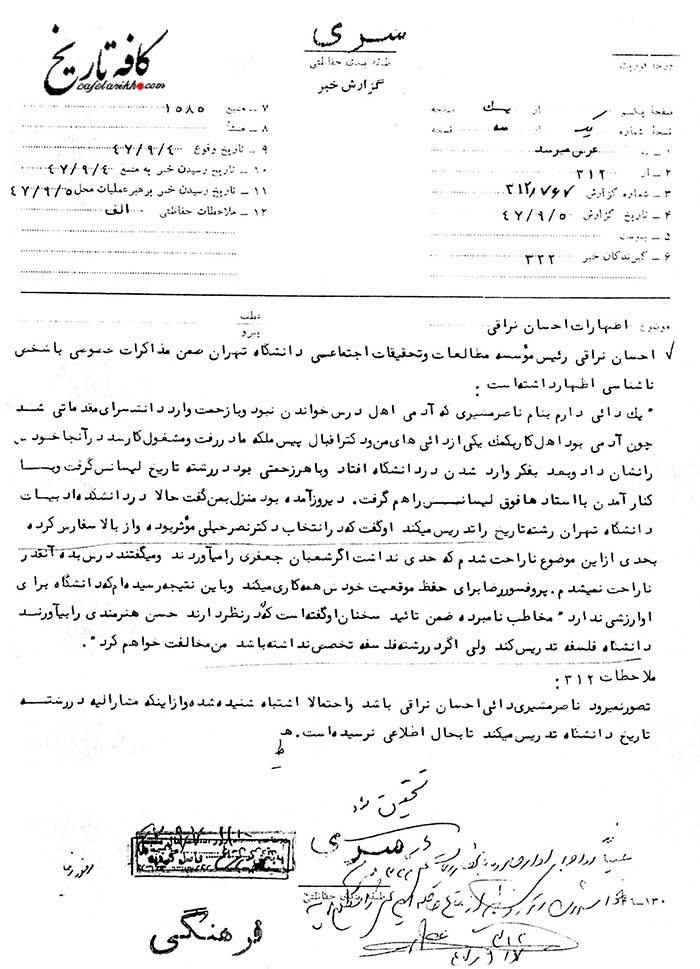 سری
کافه تاریخ
cafetarikh.com
طبقه بندی حفاظتی
گزارش خبر
صفحه یکم از یک صفحه
نسخه شماره یک از سه نسخه
۱ ـ به عرض میرسد
۲ ـ از ۳۱۲
۳ ـ شماره گزارش ۳۱۲/۷۶۷
۴ ـ تاریخ گزارش ۴۷/۹/۵
۵ ـ پیوست
۶ ـ گیرندگان خبر ۳۲۲
۷ ـ منبع ۱۵۸۵
۸ ـ منشأ
۹ ـ تاریخ وقوع ۴۷/۹/۴
۱۰ ـ تاریخ رسیدن خبر به منبع ۴۷/۹/۴
۱۱ ـ تاریخ رسیدن خبر برهبر عملیات محل ۴۷/۹/۵
۱۲ ـ ملاحظات حفاظتی الف
موضوع اظهارات احسان نراقی
عطف
پیرو
احسان نراقی رئیس مؤسسه مطالعات وتحقیقات اجتماعی دانشگاه تهران ضمن مذاکرات خصوصی باشخص
ناشناسی اظهارداشته است :
" یک دائی دارم بنام ناصرمشیری که آدمی اهل درس خواندن نبود وبازحمت وارد دانشسرای مقدماتی شد
چون آدمی بود اهل کاریکمک یکی از دائی های من ودکتراقبال پیس ملکه مادررفت ومشغول کارشد درآنجا خودس
رانشان داد وبعد بفکر وارد شدن دردانشگاه افتاد وباهرزحمتی بود دررشته تاریخ لیسانس گرفت وبا
کنارآمدن بااستادها فوق لیسانس راهم گرفت. دیروزآمده بود منزل بمن گفت حالا دردانشکده ادبیات
دانشگاه تهران رشته تاریخ را تدریس میکند اوگفت که درانتخاب دکترنصرخیلی مؤثربوده وازبالا سفارس کرده
بحدی ازاین موضوع ناراحت شدم که حدی نداشت اگرشعبان جعفری رامیآوردند ومیگفتند درس بده آنقدر
ناراحت نمیشدم. پروفسوررضا برای حفظ موقعیت خودس همه کاری میکند وباین نتیجه رسیده ام که دانشگاه برای
اوارزشی ندارد " مخاطب نامبرده ضمن تائید سخنان اوگفته است که درنظردارند حسن هنرمندی رابیآورند
دانشگاه فلسفه تدریس کند ولی اگردررشته فلسفه تخصص نداشته باشد من مخالفت خواهم کرد ".
ملاحظات ۳۱۲ :
تصورنمیرود ناصرمشیری دائی احسان نراقی باشد واحتمالا اشتباه شنیده شده وازاینکه مشارالیه دررشته
تاریخ دانشگاه تدریس میکند تابحال اطلاعی نرسیده است. ه
ط
تحقیق شود
سری
طبقه بندی حفاظتی
۳۱۲
فرهنگی